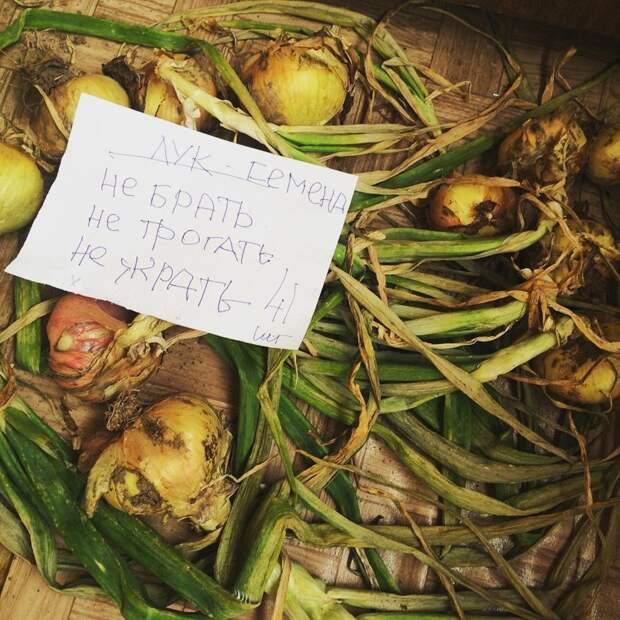 ЛУК - СЕМЕНА
НЕ БРАТЬ
НЕ ТРОГАТЬ
НЕ ЖРАТЬ 41
шт